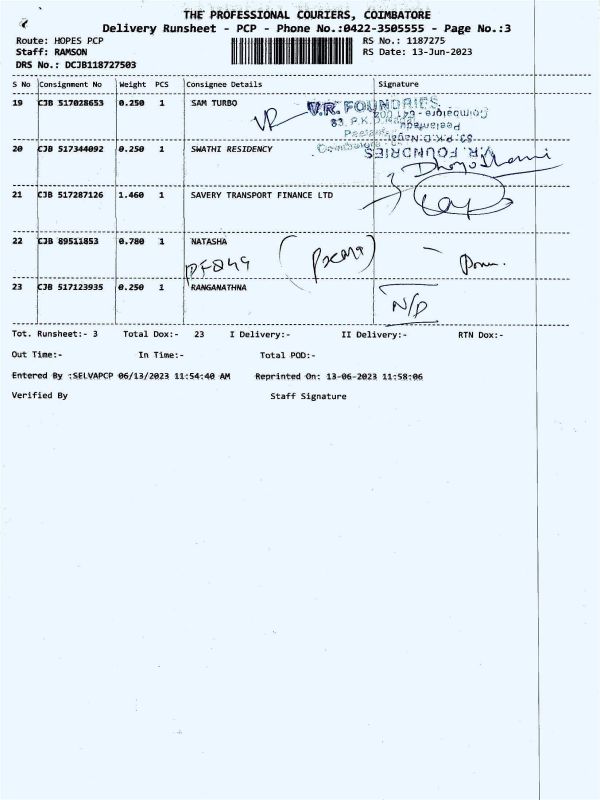 THE PROFESSIONAL COURIERS, COIMBATORE
Delivery Runsheet - PCP - Phone No.:0422-3505555 - Page No.:3
Route: HOPES PCP RS No.: 1187275
Staff: RAMSON RS Date: 13-Jun-2023
DRS No.: DCJB118727503
S No Consignment No Weight PCS Consignee Details Signature
19 CJB 517028653 0.250 1 SAM TURBO
VR V.R. FOUNDRIES
20 CJB 517344092 0.250 1 SWATHI RESIDENCY
V.R. FOUNDRIES
21 CJB 517287126 1.460 1 SAVERY TRANSPORT FINANCE LTD
22 CJB 89511853 0.780 1 NATASHA
23 CJB 517123935 0.250 1 RANGANATHNA
N/D
Tot. Runsheet:- 3 Total Dox:- 23 I Delivery:- II Delivery:- RTN Dox:-
Out Time:- In Time:- Total POD:-
Entered By :SELVAPCP 06/13/2023 11:54:40 AM Reprinted On: 13-06-2023 11:58:06
Verified By Staff Signature